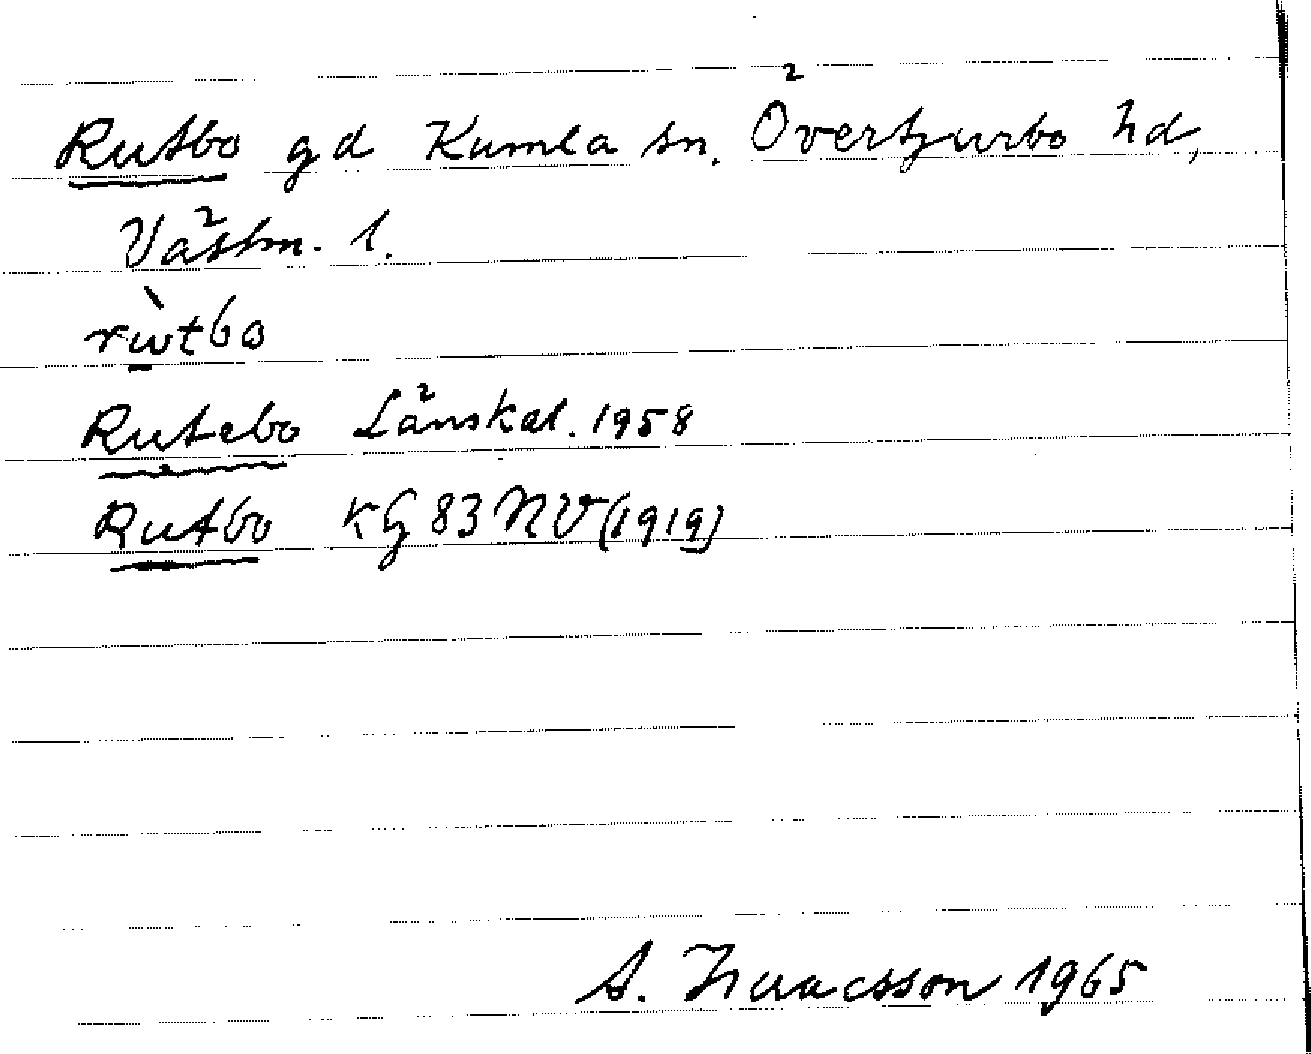 Rutbo gd Kumla sn. Övertjurbo hd,
Västm. l.
rɯ̀tbo
Rutebo Länskal. 1958
Rutbo KG 83 NV (1919)
A. Isaacsson 1965